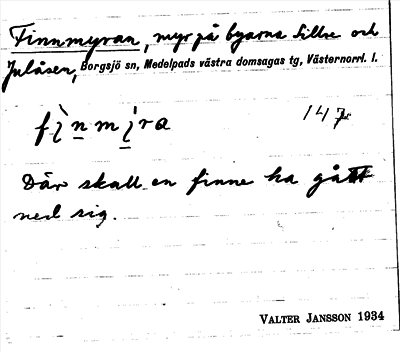 Finnmyran, myr på byarna Sillre och
Julåsen, Borgsjö sn, Medelpads västra domsagas tg, Västernorrl. l.
fìnmýra 147
Där skall en finne ha gått
ned sig.
VALTER JANSSON 1934